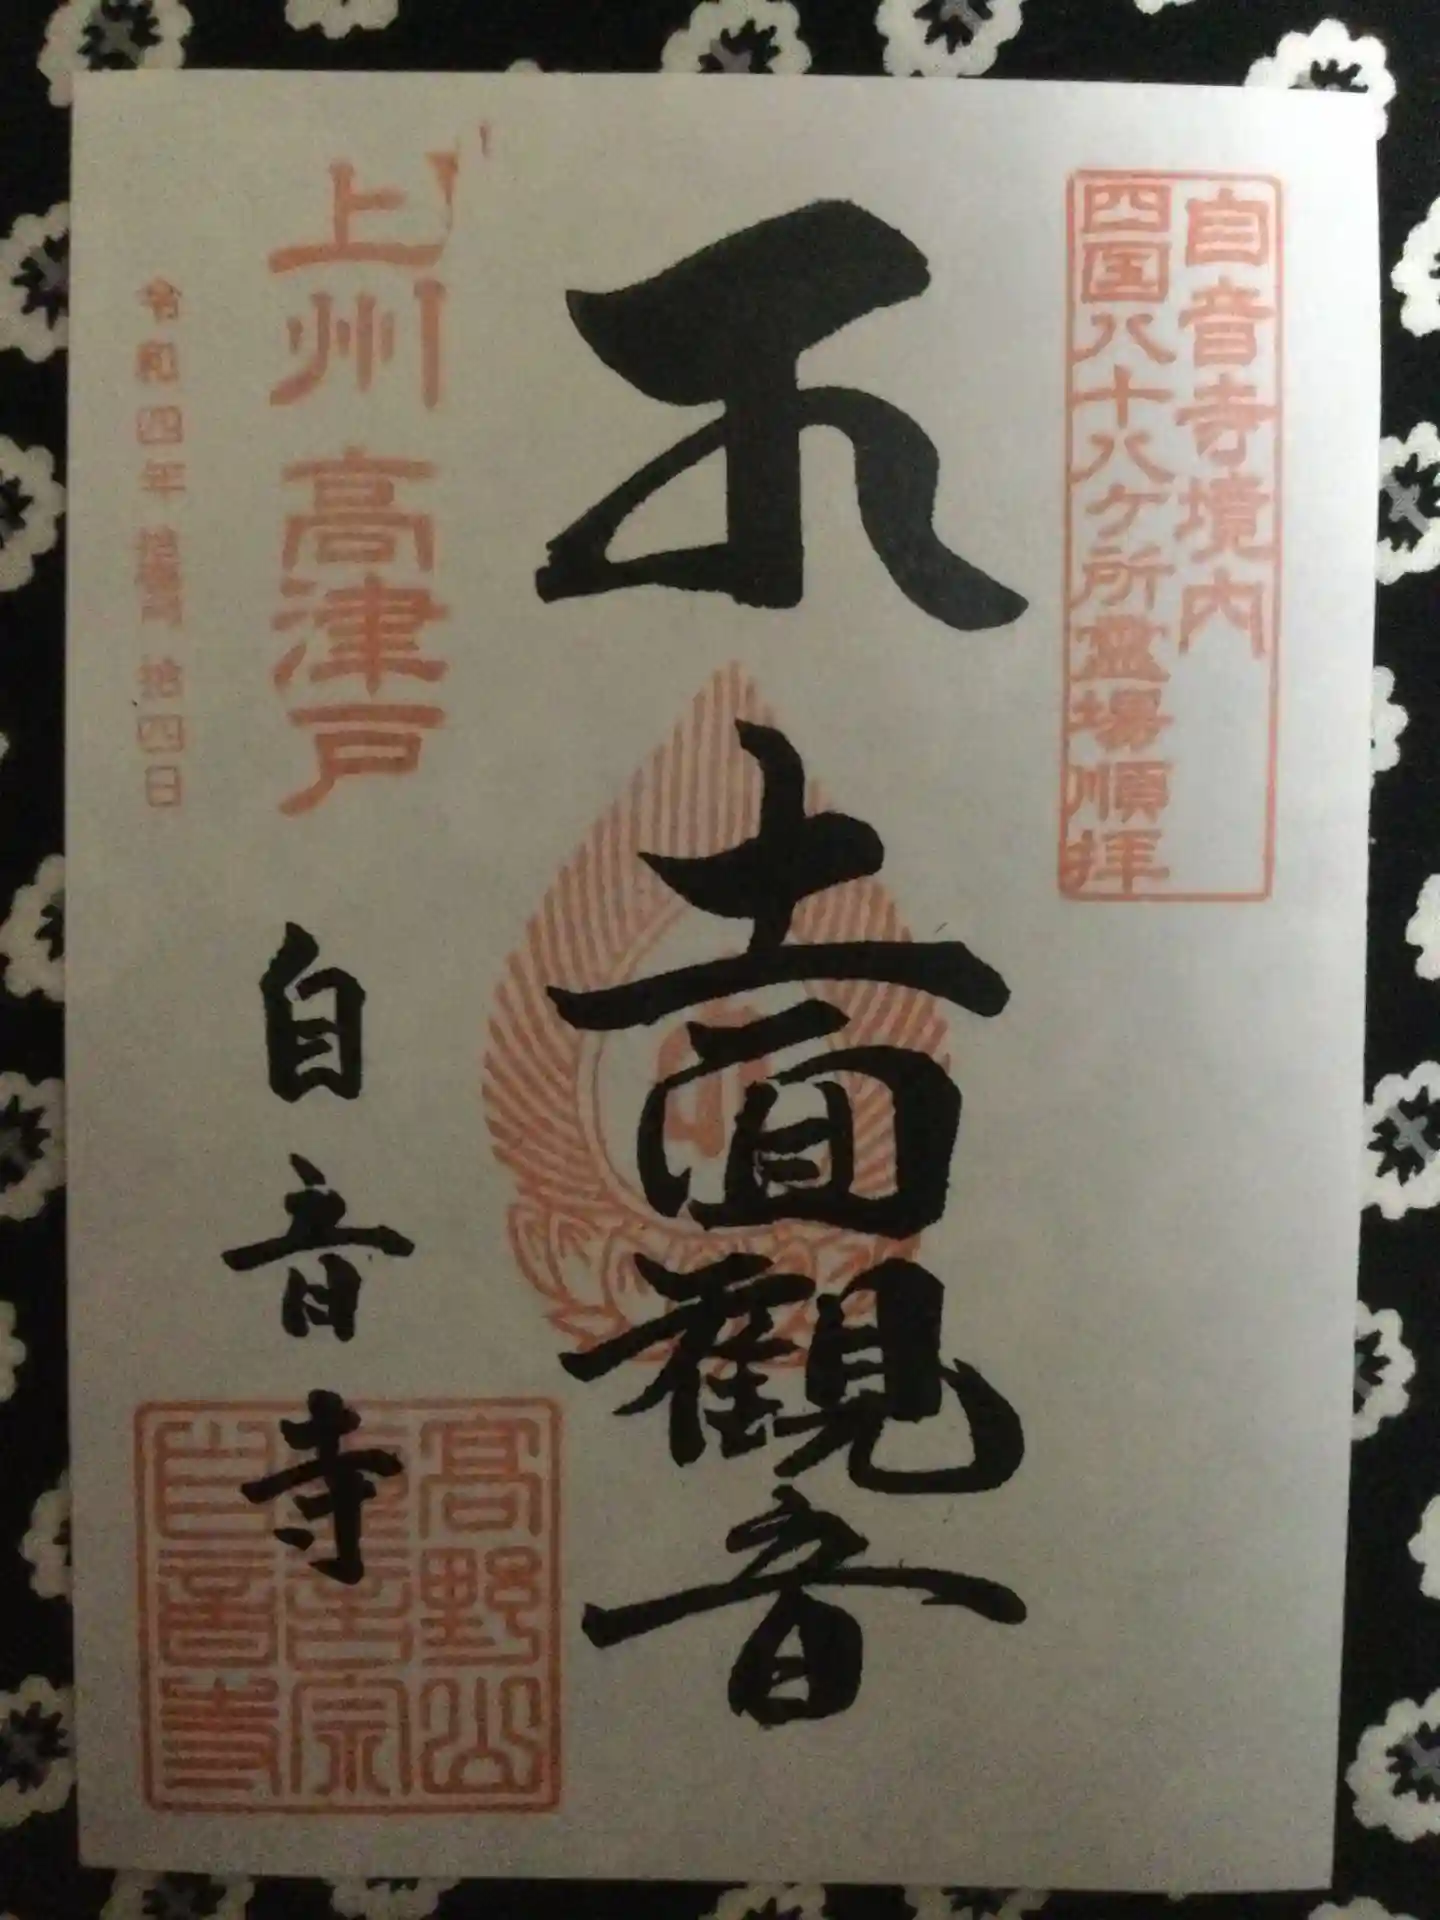 自音寺境内
四国八十八ケ所霊場順拝
十一面観音
上州 高津戸
自音寺
令和四年 拾四日
高野山
言宗
自音寺